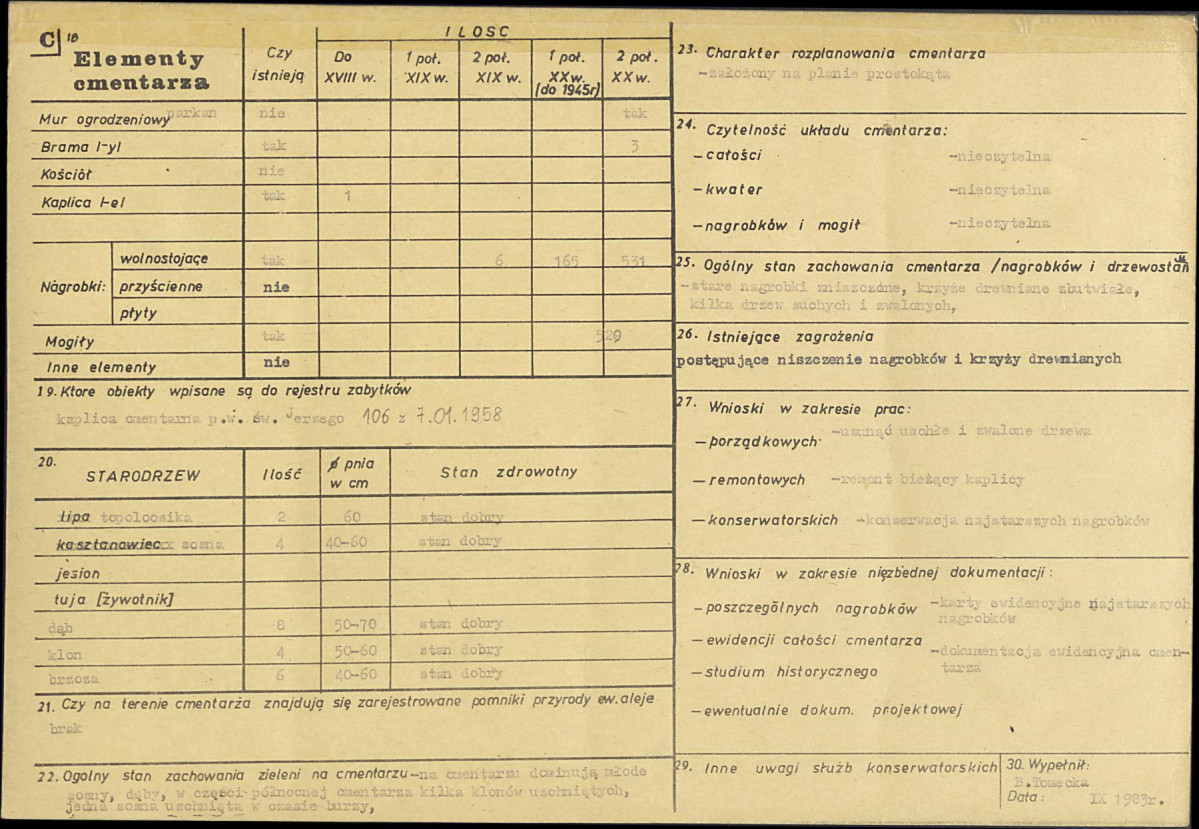 C 18
Elementy cmentarza
Czy istnieją
ILOŚĆ
Do XVIII w.
1 poł. XIX w.
2 poł. XIX w.
1 poł. XX w. (do 1945r)
2 poł. XX w.
Mur ogrodzeniowy parkan nie tak
Brama /-y/ tak 3
Kościół nie
Kaplica /-e/ tak 1
Nagrobki: wolnostojące tak 6 165 531
przyścienne nie
płyty
Mogiły tak 529
Inne elementy nie
19. Ktore obiekty wpisane są do rejestru zabytków
kaplica cmentarna p.w. św. Jerzego 106 z 7.01.1958
20. STARODRZEW Ilość ϕ pnia w cm Stan zdrowotny
lipa topoloosika 2 60 stan dobry
kasztanowiec sosna 4 40-60 stan dobry
jesion
tuja [żywotnik]
dąb 8 50-70 stan dobry
klon 4 50-60 stan dobry
brzoza 6 40-60 stan dobry
21. Czy na terenie cmentarza znajdują się zarejestrowane pomniki przyrody ew. aleje
brak
22. Ogolny stan zachowania zieleni na cmentarzu -na cmentarzu dominują młode
sosny, dęby, w części północnej cmentarza kilka klonów uschniętych,
jedna sosna uschnięta w czasie burzy,
23. Charakter rozplanowania cmentarza
-założony na planie prostokąta
24. Czytelność układu cmentarza:
- całości -nieczytelna
- kwater -nieczytelna
- nagrobków i mogił -nieczytelna
25. Ogólny stan zachowania cmentarza /nagrobków i drzewostan
-stare nagrobki zniszczone, krzyże drewniane zbutwiałe,
kilka drzew suchych i zwalonych,
26. Istniejące zagrożenia
postępujące niszczenie nagrobków i krzyży drewnianych
27. Wnioski w zakresie prac:
- porządkowych -usunąć uschłe i zwalone drzewa
- remontowych -remont bieżący kaplicy
- konserwatorskich -konserwacja najstarszych nagrobków
28. Wnioski w zakresie nięzbednej dokumentacji:
- poszczególnych nagrobków -karty ewidencyjne najstarszych
nagrobków
- ewidencji całości cmentarza -dokumentacja ewidencyjna cmen-
tarza
- studium historycznego
- ewentualnie dokum. projektowej
29. Inne uwagi służb konserwatorskich
30. Wypełnił:
B.Tomecka
Data: IX 1983r.